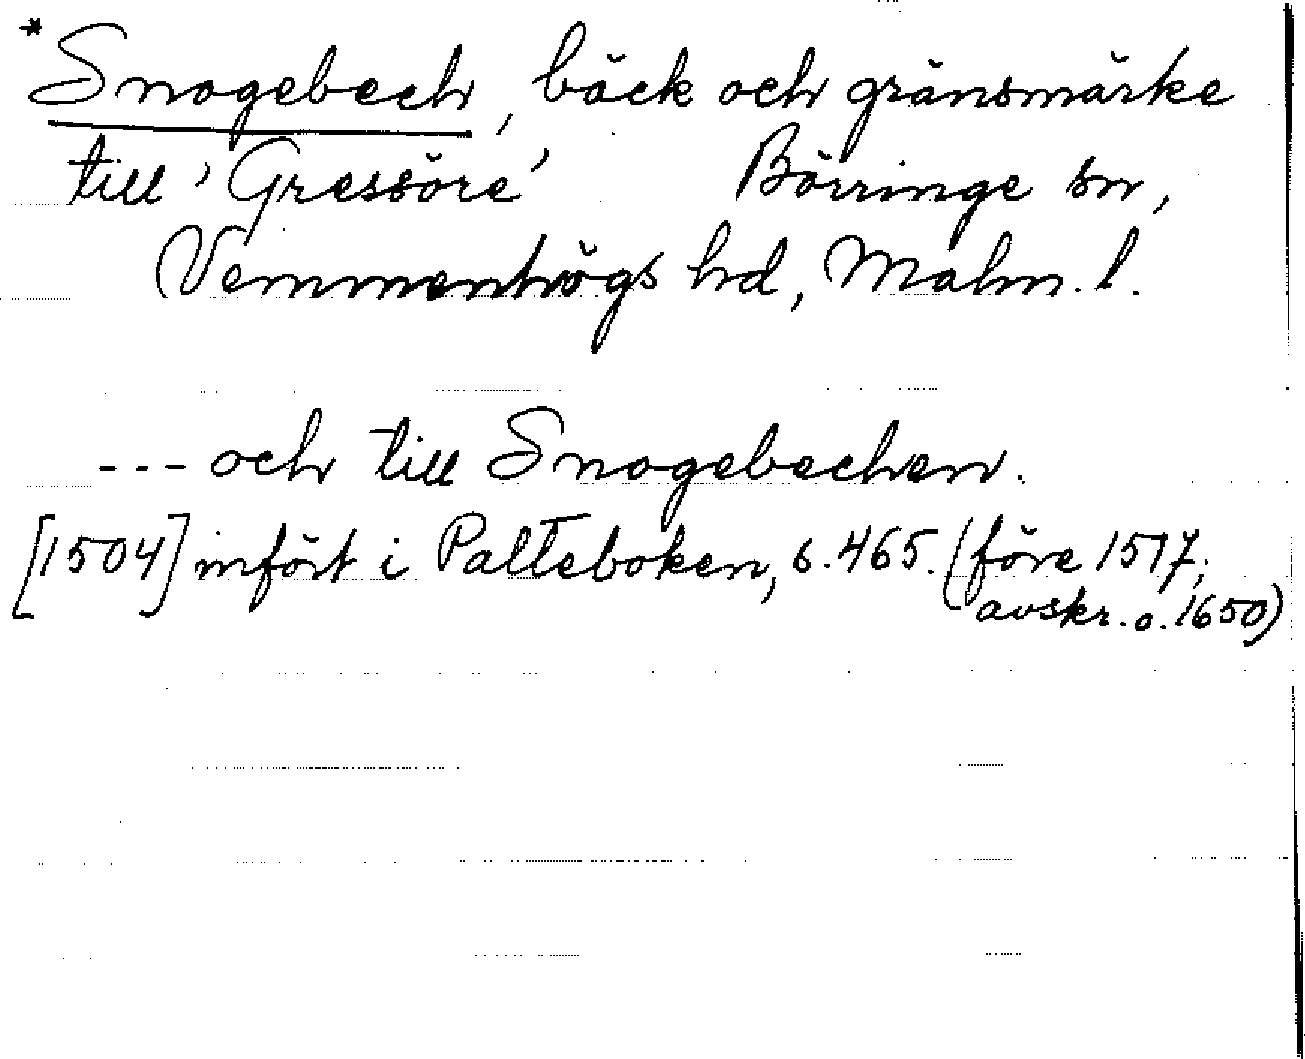 *Snogebech, bäck och gränsmärke
till 'Gressöre' Börringe sn,
Vemmenhögs hd, Malm. l.
--- och till Snogebechen.
[1504] infört i Palteboken, s. 465. (före 1517;
avskr. o. 1650)